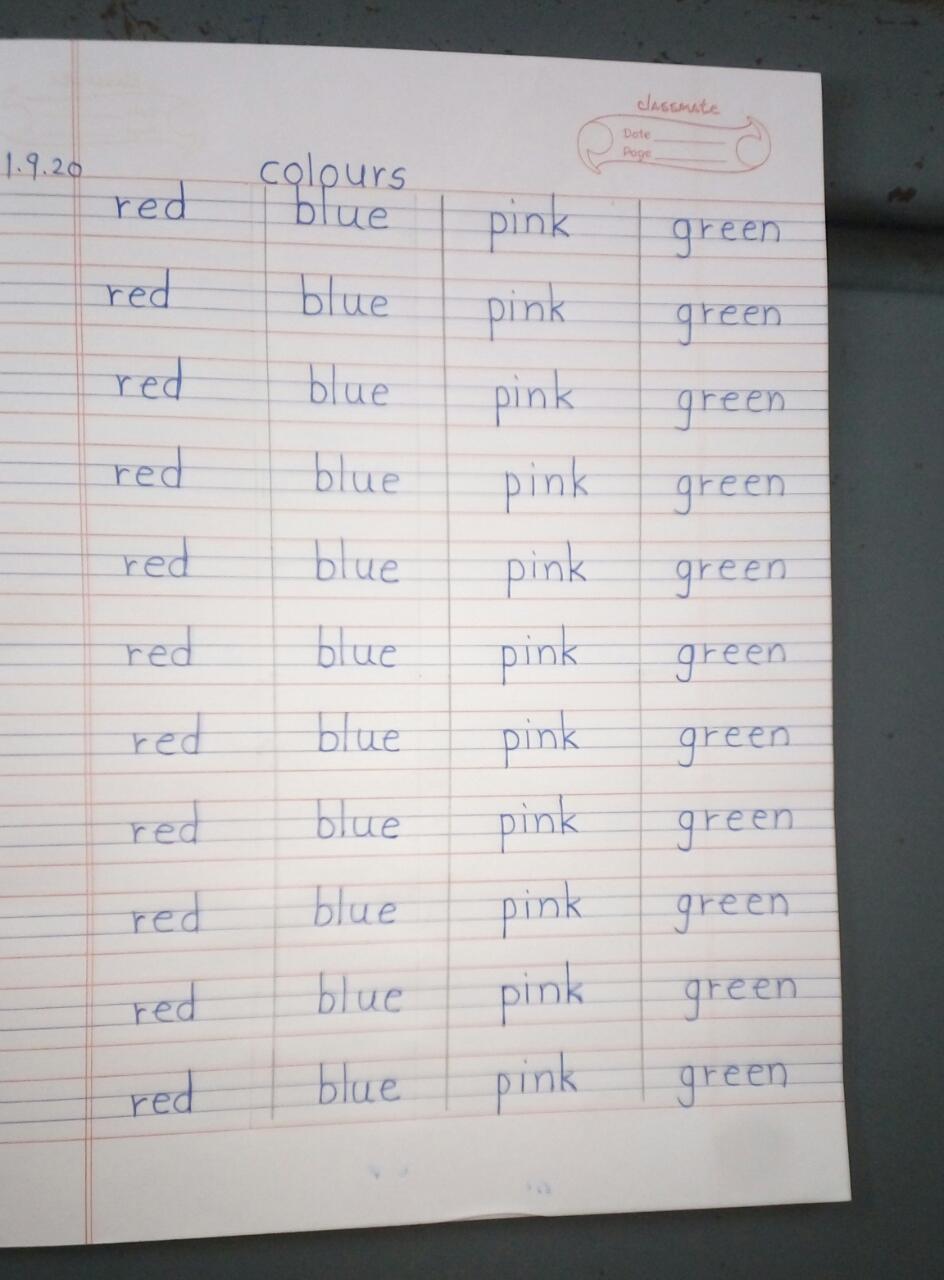 classmate
Date
Page
1.9.20 colours
red blue pink green
red blue pink green
red blue pink green
red blue pink green
red blue pink green
red blue pink green
red blue pink green
red blue pink green
red blue pink green
red blue pink green
red blue pink green